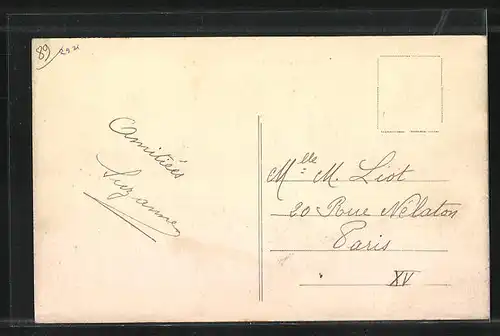 89
Amitiés
Suzanne
Mlle M. Liot
20 Rue Nélaton
Paris
XV